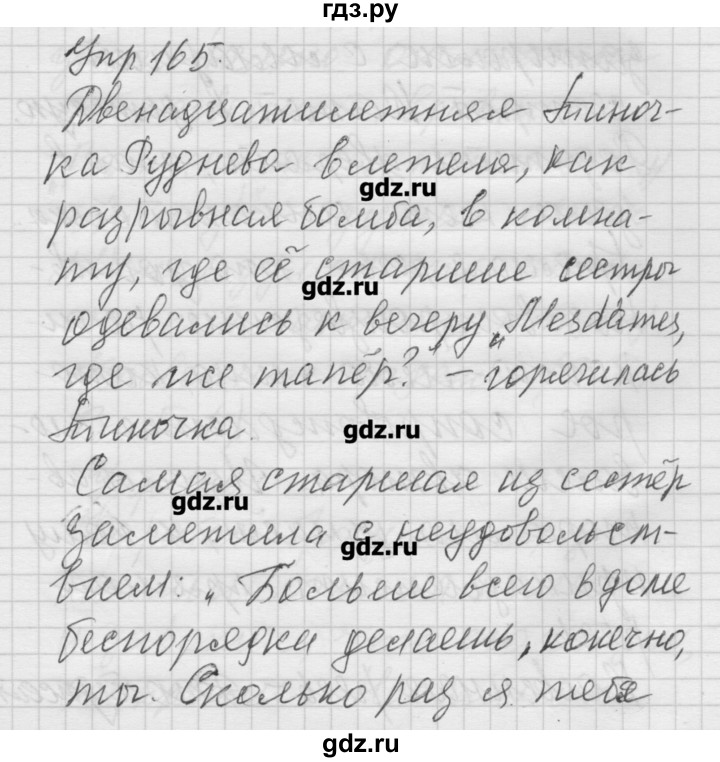 гдз.ру
Упр 165.
Двенадцатилетняя Тиноч-
ка Руднева влетела, как
gdz.ru
разрывная бомба, в комна-
ту, где её старшие сестры
gdz.ru
одевались к вечеру „Mesdames,
где же тапёр?" – горячилась
Тиночка.
gdz.ru
Самая старшая из сестёр
gdz.ru
заметила с неудовольст-
gdz.ru
вием: „Больше всего в доме
беспорядки делаешь, конечно,
ты. Сколько раз я тебя
gdz.ru